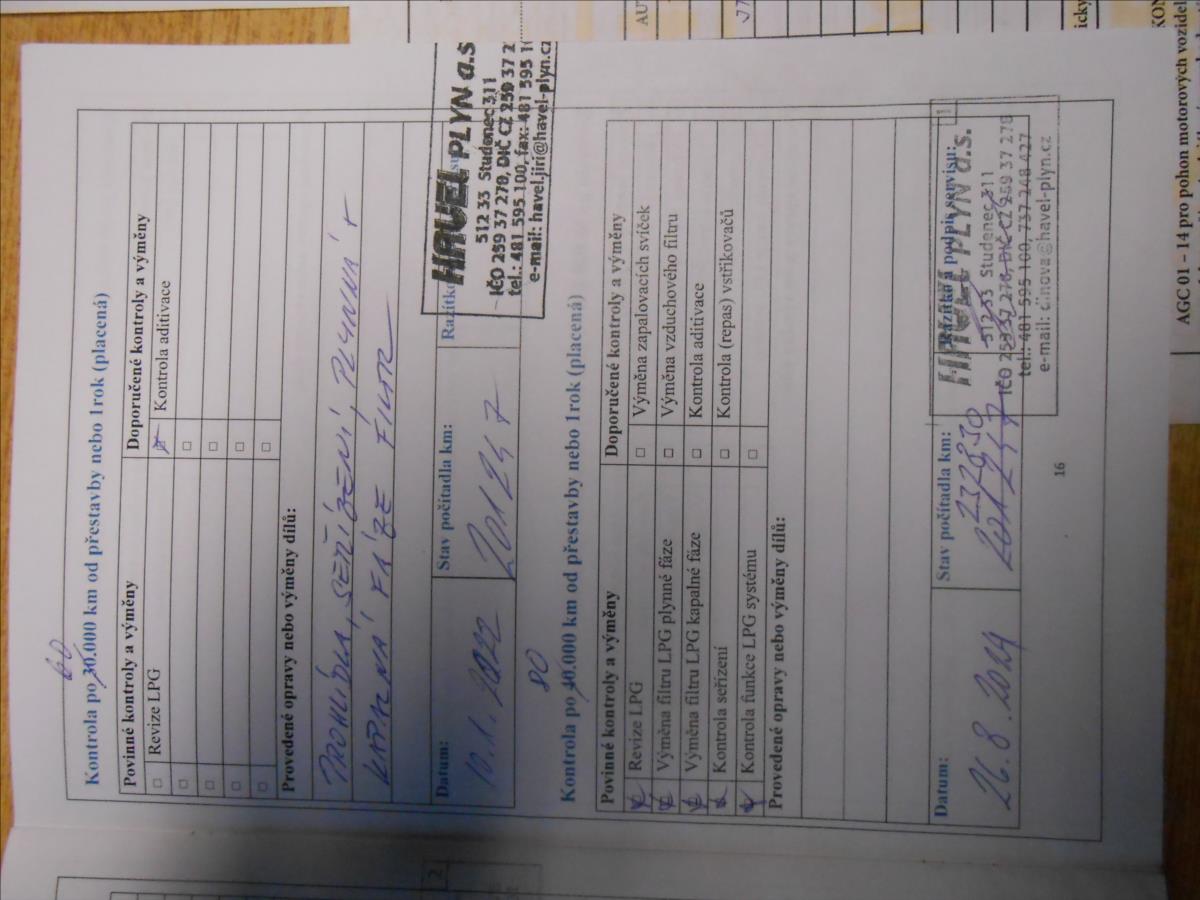 60
Kontrola po 30.000 km od přestavby nebo 1rok (placená)
Povinné kontroly a výměny Doporučené kontroly a výměny
□ Revize LPG Kontrola aditivace
□ □
□ □
□ □
□ □
Provedené opravy nebo výměny dílů:
PROHLÍDKA, SEŘÍZENÍ, PLYNNÁ +
KAPALNÁ FÁZE FILTR
Datum: Stav počítadla km: Razítko
10.1.2022 201247
HAVEL PLYN a.s
512 33 Studenec 311
IČO 259 37 278, DIČ CZ 259 37 2
tel.: 481 595 100, fax: 481 595 1
e-mail: havel.jiri@havel-plyn.cz
80
Kontrola po 40.000 km od přestavby nebo 1rok (placená)
Povinné kontroly a výměny Doporučené kontroly a výměny
Revize LPG □ Výměna zapalovacích svíček
Výměna filtru LPG plynné fáze □ Výměna vzduchového filtru
Výměna filtru LPG kapalné fáze □ Kontrola aditivace
Kontrola seřízení □ Kontrola (repas) vstřikovačů
Kontrola funkce LPG systému □
Provedené opravy nebo výměny dílů:
Datum: Stav počítadla km: Razítko a podpis servisu:
26.8.2024 232830
201247
HAVEL PLYN a.s.
512 33 Studenec 311
IČO 259 37 278, DIČ CZ 259 37 278
tel.: 481 595 100, 737 248 427
e-mail: cinova@havel-plyn.cz
16
AGC 01 – 14 pro pohon motorových vozidel